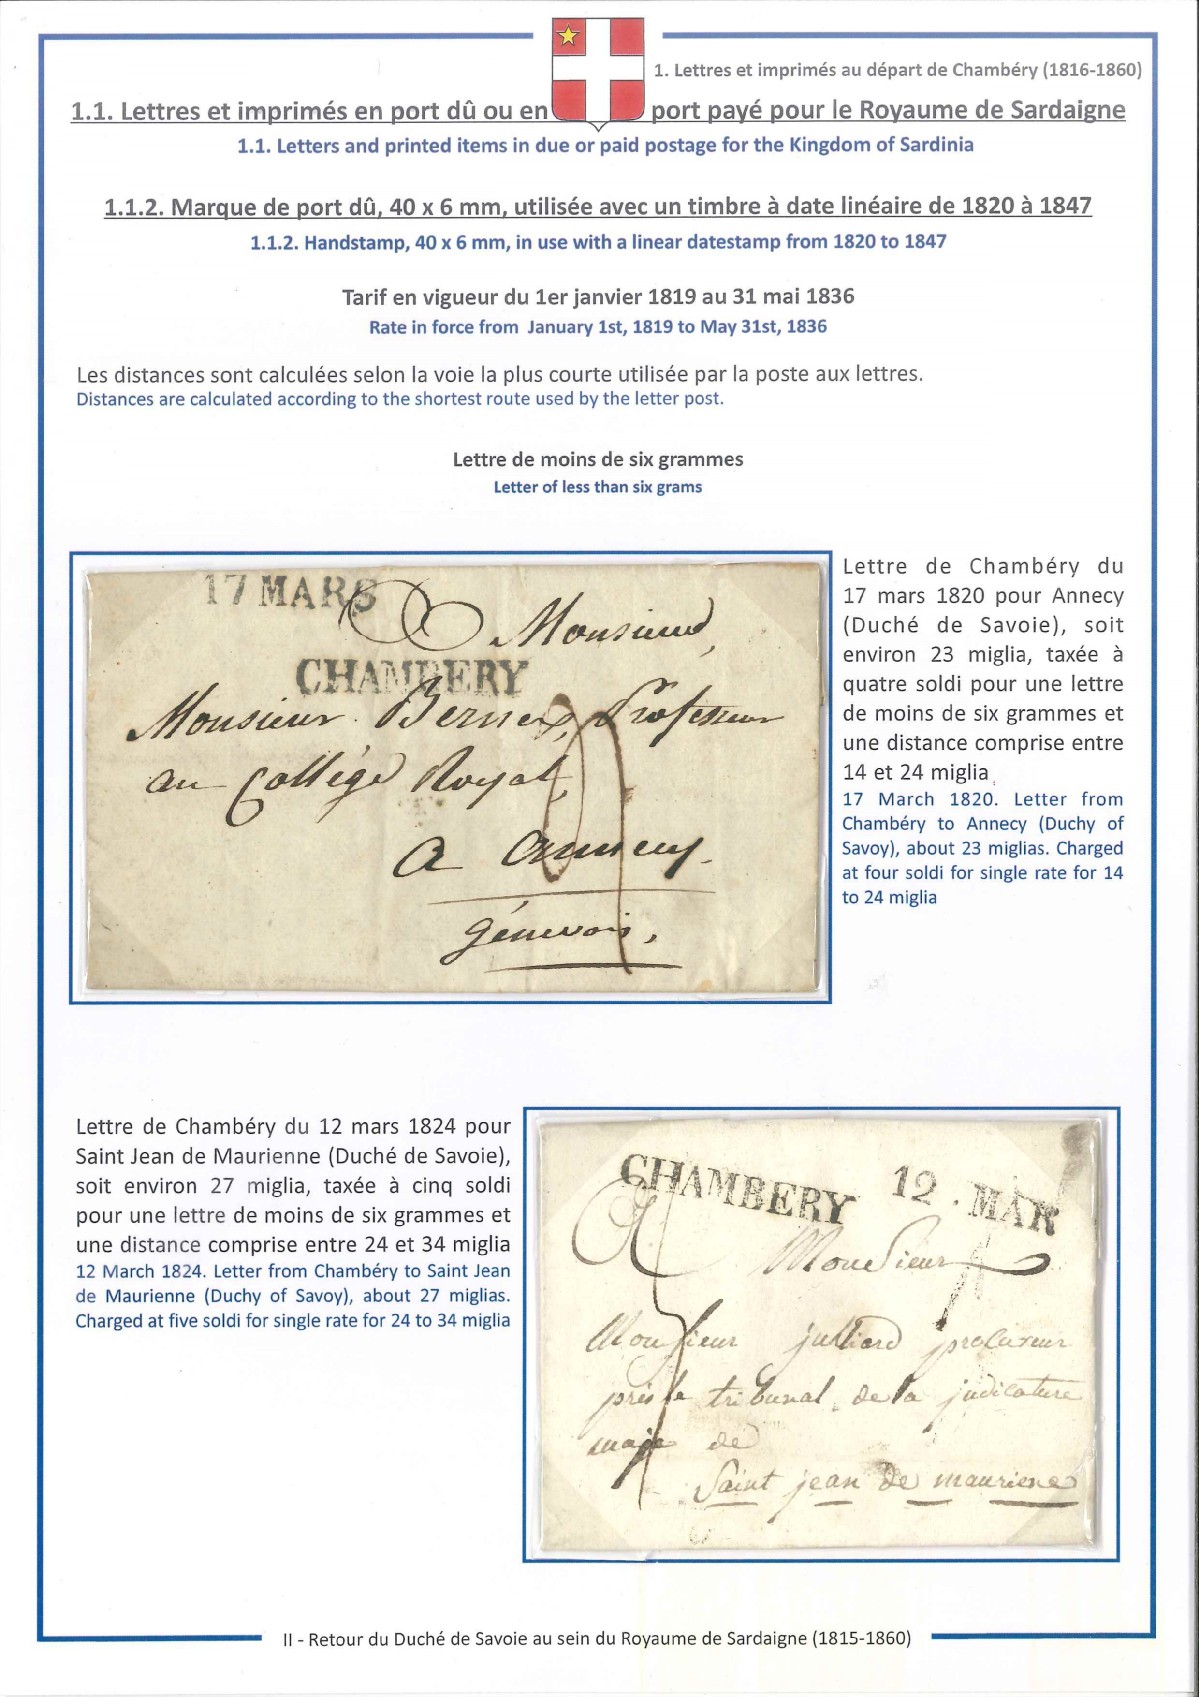 1. Lettres et imprimés au départ de Chambéry (1816-1860)
1.1. Lettres et imprimés en port dû ou en port payé pour le Royaume de Sardaigne
1.1. Letters and printed items in due or paid postage for the Kingdom of Sardinia
1.1.2. Marque de port dû, 40 x 6 mm, utilisée avec un timbre à date linéaire de 1820 à 1847
1.1.2. Handstamp, 40 x 6 mm, in use with a linear datestamp from 1820 to 1847
Tarif en vigueur du 1er janvier 1819 au 31 mai 1836
Rate in force from January 1st, 1819 to May 31st, 1836
Les distances sont calculées selon la voie la plus courte utilisée par la poste aux lettres.
Distances are calculated according to the shortest route used by the letter post.
Lettre de moins de six grammes
Letter of less than six grams
17 MARS
Monsieur,
CHAMBERY
Monsieur Bernex, Professeur
au Collège Royal,
a annecy.
génevois,
Lettre de Chambéry du
17 mars 1820 pour Annecy
(Duché de Savoie), soit
environ 23 miglia, taxée à
quatre soldi pour une lettre
de moins de six grammes et
une distance comprise entre
14 et 24 miglia
17 March 1820. Letter from
Chambéry to Annecy (Duchy of
Savoy), about 23 miglias. Charged
at four soldi for single rate for 14
to 24 miglia
Lettre de Chambéry du 12 mars 1824 pour
Saint Jean de Maurienne (Duché de Savoie),
soit environ 27 miglia, taxée à cinq soldi
pour une lettre de moins de six grammes et
une distance comprise entre 24 et 34 miglia
12 March 1824. Letter from Chambéry to Saint Jean
de Maurienne (Duchy of Savoy), about 27 miglias.
Charged at five soldi for single rate for 24 to 34 miglia
CHAMBERY 12 . MAR
A Monsieur
Monsieur julliard procureur
près le tribunal de la judicature
maje de
Saint jean de mauriene
II - Retour du Duché de Savoie au sein du Royaume de Sardaigne (1815-1860)